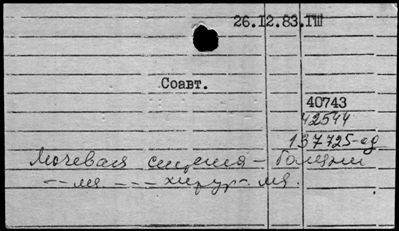 26.12.83.ГШ
Соавт.
40743
42544
137725-ед
Мочевая система - болезни
-- ия. --- хирур- ия.